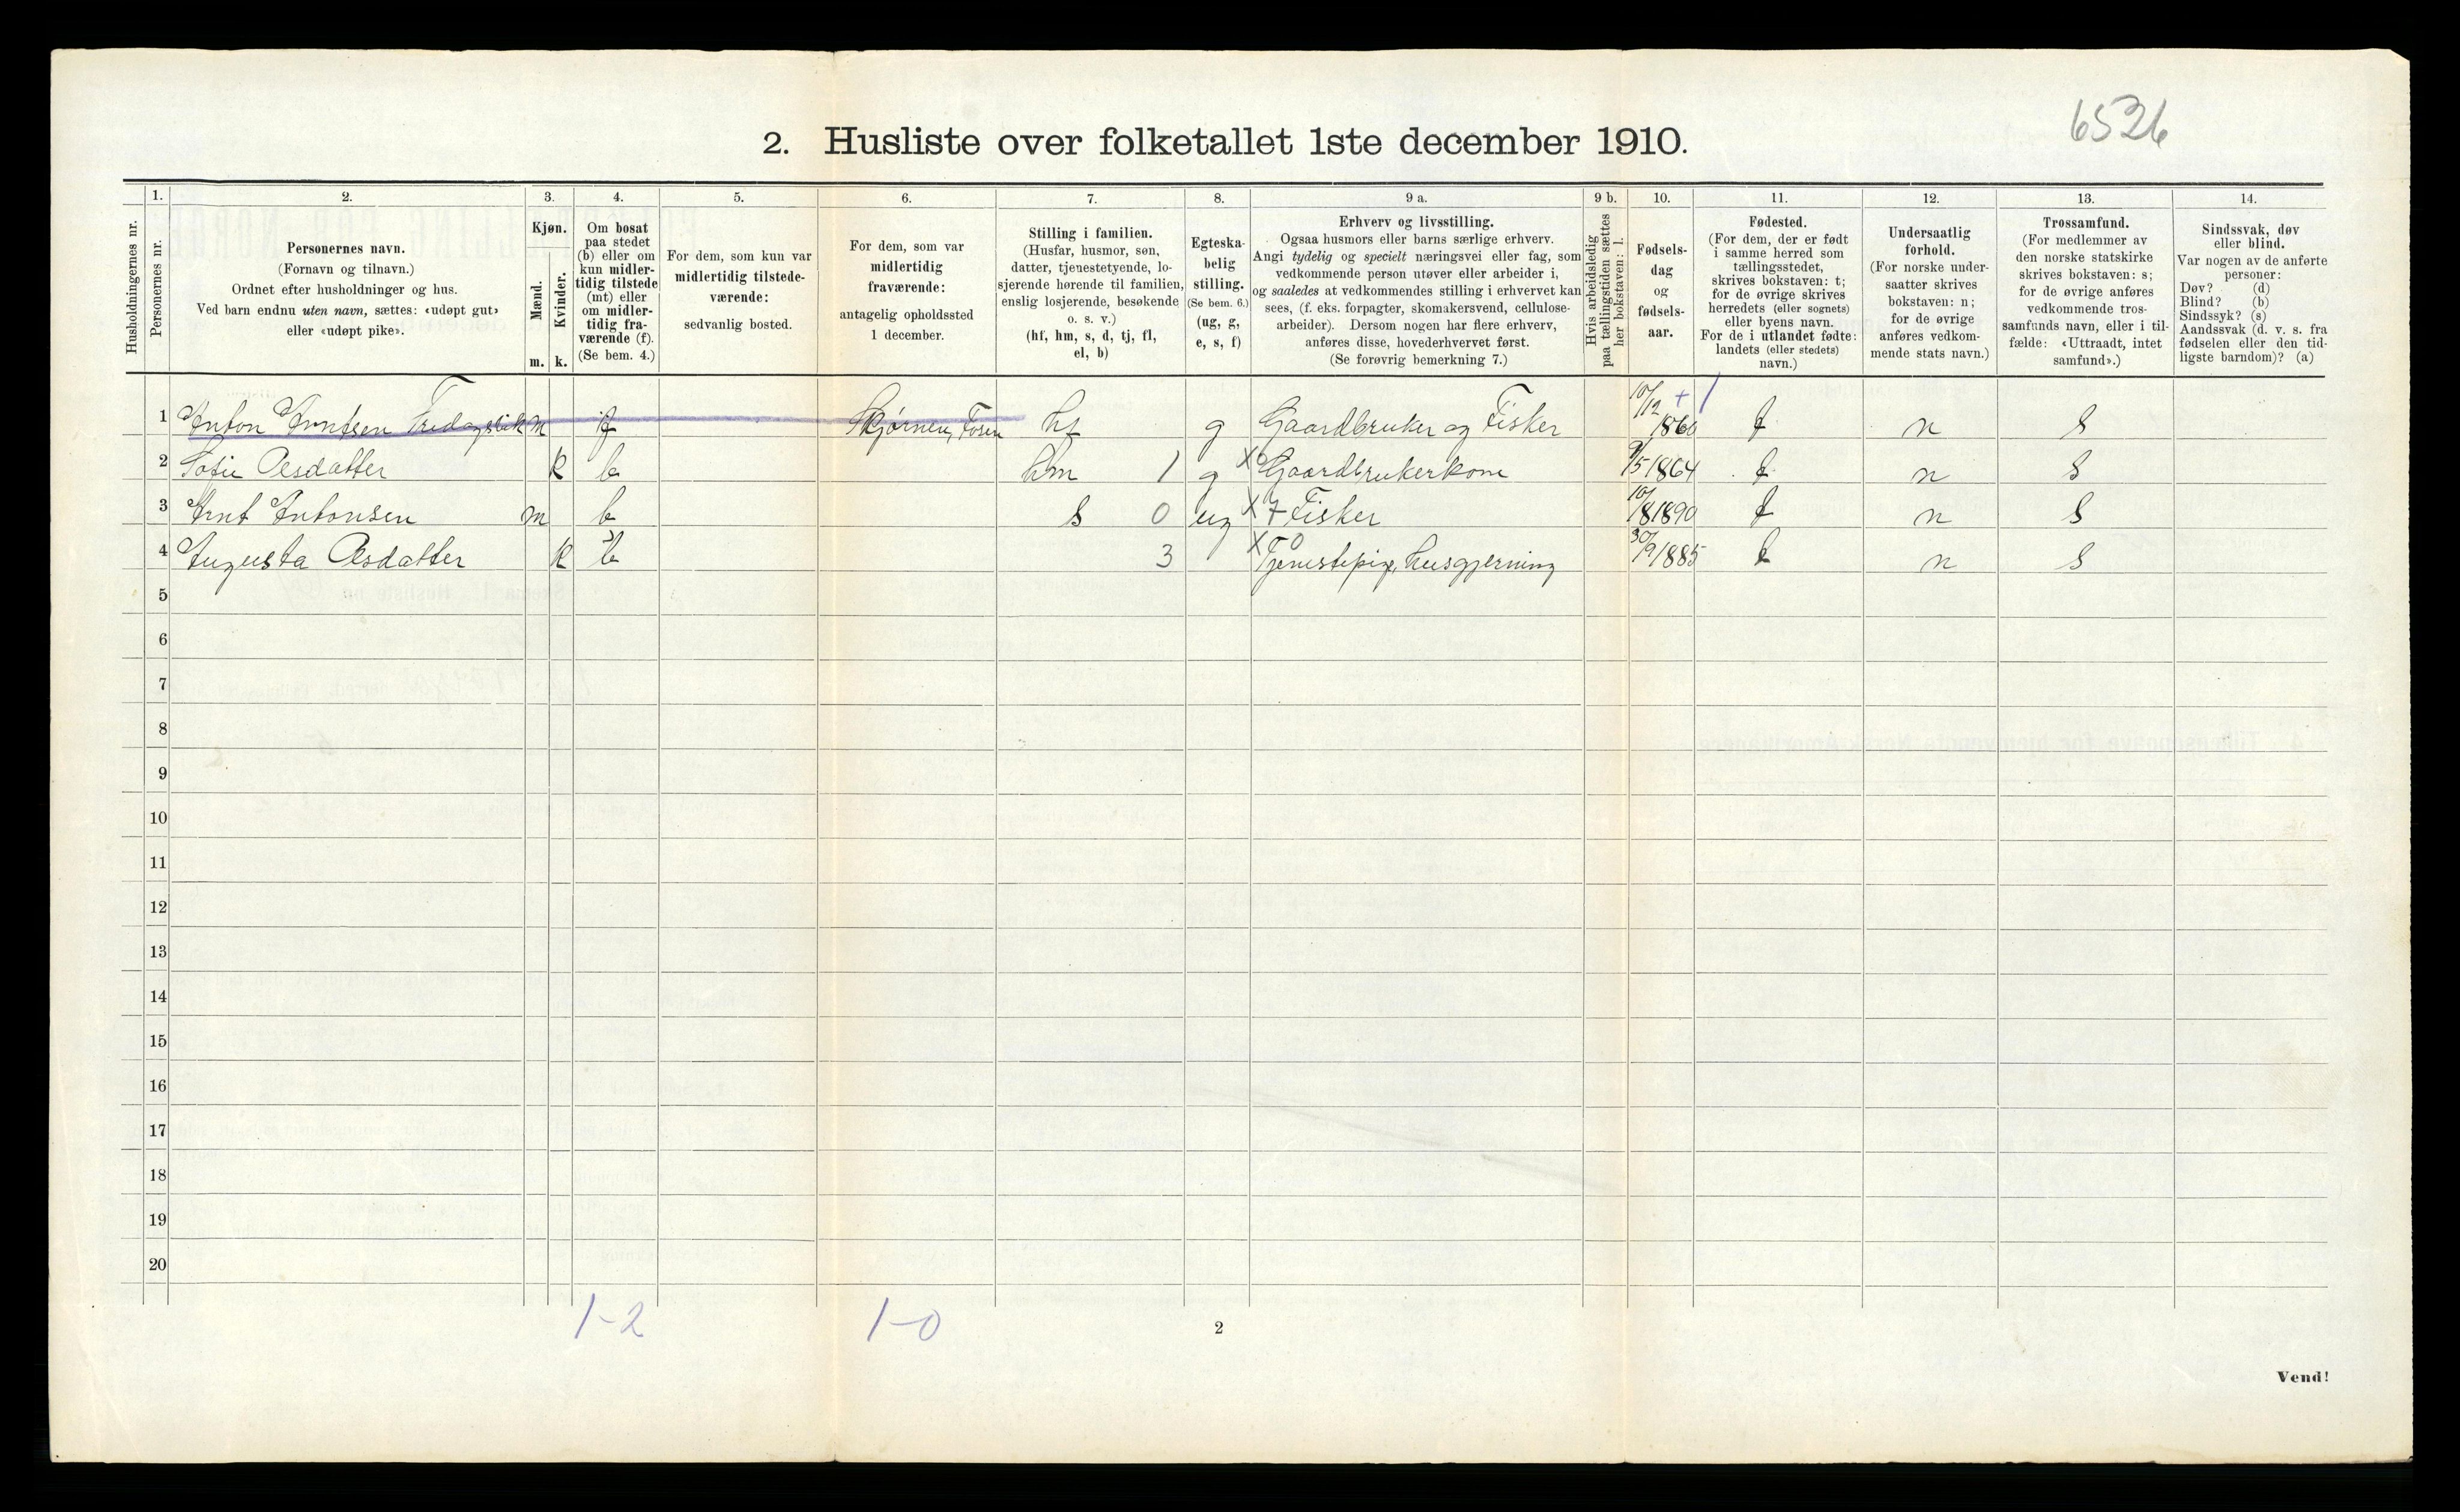 6526
2. Husliste over folketallet 1ste december 1910.
Husholdningernes nr.
1.
Personernes nr.
2.
Personernes navn.
(Fornavn og tilnavn.)
Ordnet efter husholdninger og hus.
Ved barn endnu uten navn, sættes: «udøpt gut»
eller «udøpt pike».
3.
Kjøn.
Mænd.
Kvinder.
m. k.
4.
Om bosat
paa stedet
(b) eller om
kun midler-
tidig tilstede
(mt) eller
om midler-
tidig fra-
værende (f).
(Se bem. 4.)
5.
For dem, som kun var
midlertidig tilstede-
værende:
sedvanlig bosted.
6.
For dem, som var
midlertidig
fraværende:
antagelig opholdssted
1 december.
7.
Stilling i familien.
(Husfar, husmor, søn,
datter, tjenestetyende, lo-
sjerende hørende til familien,
enslig losjerende, besøkende
o. s. v.)
(hf, hm, s, d, tj, fl,
el, b)
8.
Egteska-
belig
stilling.
(Se bem. 6.)
(ug, g,
e, s, f)
9 a.
Erhverv og livsstilling.
Ogsaa husmors eller barns særlige erhverv.
Angi tydelig og specielt næringsvei eller fag, som
vedkommende person utøver eller arbeider i,
og saaledes at vedkommendes stilling i erhvervet kan
sees, (f. eks. forpagter, skomakersvend, cellulose-
arbeider). Dersom nogen har flere erhverv,
anføres disse, hovederhvervet først.
(Se forøvrig bemerkning 7.)
9 b.
Hvis arbeidsledig
paa tællingstiden sættes
her bokstaven: l.
10.
Fødsels-
dag
og
fødsels-
aar.
11.
Fødested.
(For dem, der er født
i samme herred som
tællingsstedet,
skrives bokstaven: t;
for de øvrige skrives
herredets (eller sognets)
eller byens navn.
For de i utlandet fødte:
landets (eller stedets)
navn.)
12.
Undersaatlig
forhold.
(For norske under-
saatter skrives
bokstaven: n;
for de øvrige
anføres vedkom-
mende stats navn.)
13.
Trossamfund.
(For medlemmer av
den norske statskirke
skrives bokstaven: s;
for de øvrige anføres
vedkommende tros-
samfunds navn, eller i til-
fælde: «Uttraadt, intet
samfund».)
14.
Sindssvak, døv
eller blind.
Var nogen av de anførte
personer:
Døv? (d)
Blind? (b)
Sindssyk? (s)
Aandssvak (d. v. s. fra
fødselen eller den tid-
ligste barndom)? (a)
1 Anton Arntsen m f Skjørnen, Fosen hf g Gaardbruker og Fisker 10/12 1860 t n S
2 Sofie Olsdatter k b hm 1 g Gaardbrukerkone 9/5 1864 t n S
3 Arnt Antonsen m b s 0 ug X 7 Fisker 10/8 1890 t n S
4 Augusta Olsdatter k b 3 X Tjenestepige, husgjerning 30/9 1885 t n S
5
6
7
8
9
10
11
12
13
14
15
16
17
18
19
20
1-2 1-0
2
Vend!